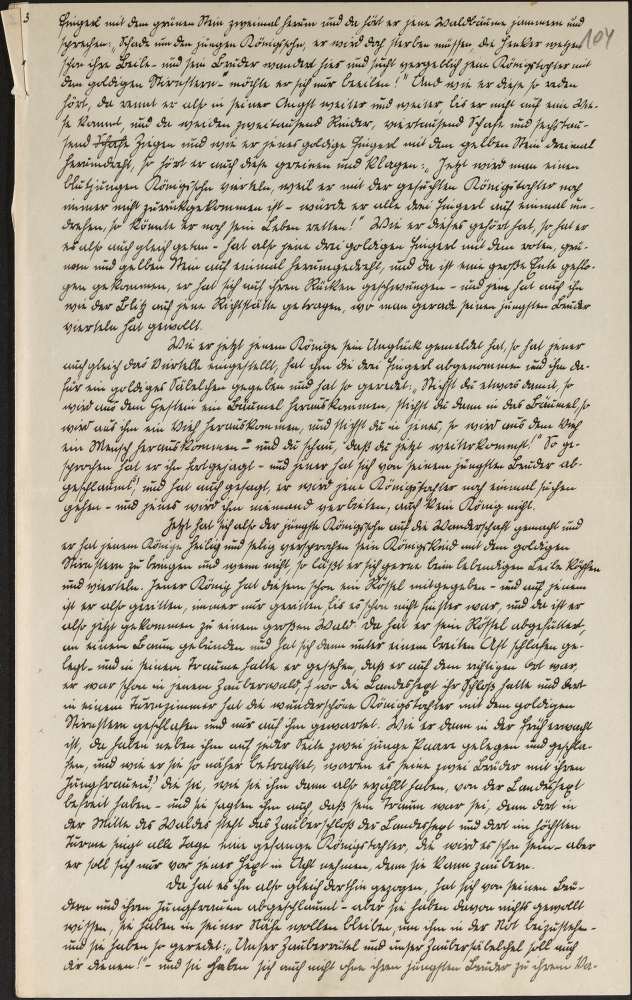 3
104
Fingerl mit dem grünen Stein zweimal herum und da hört er jene Waldbäume jammern und
sprechen: "Schade um den jungen Königssohn, er wird doch sterben müssen, die Henker wetzen
schon ihre Beile - und sein Bruder wandert hier und sucht vergeblich jene Königstochter mit
dem goldigen Stirnstern - möchte er sich nur beeilen!" Und wie er diese so reden
hört, da rennt er also in seiner Angst weiter und weiter, bis er nicht auf eine Wie-
se kommt, und da weiden zweitausend Rinder, viertausend Schafe und sechstau-
send Ziegen und wie er jenes goldige Fingerl mit dem gelben Stein dreimal
herumdreht, so hört er auch diese greinen und klagen: "Jetzt wird man einen
blutjungen Königssohn vierteln, weil er mit der gesuchten Königstochter noch
immer nicht zurückgekommen ist - würde er alle drei Fingerl auf einmal um-
drehen, so könnte er noch sein Leben retten!" Wie er dieses gehört hat, so hat er
es also auch gleich getan - hat also seine drei goldigen Fingerl mit dem roten, grü-
nen und gelben Stein auf einmal herumgedreht, und da ist eine große Ente geflo-
gen gekommen, er hat sich auf ihren Rücken geschwungen - und jene hat auch ihn
wie der Blitz auf jene Richtstätte getragen, wo man gerade seinen jüngsten Bruder
vierteln hat gewollt.
Wie er jetzt jenem Könige sein Unglück gemeldet hat, so hat jener
auch gleich das Vierteln eingestellt, hat ihm die drei Fingerl abgenommen und ihm da-
für ein goldiges Säbelchen gegeben und hat so geredet: "Stichst du etwas damit, so
wird aus dem Gestein ein Bäumel herauskommen, stichst du dann in das Bäumel, so
wird aus ihm ein Vieh herauskommen, und stichst du in jenes, so wird aus dem Vieh
ein Mensch herauskommen - und du schau, daß du jetzt weiterkommst!" So ge-
sprochen hat er ihn fortgejagt - und jener hat sich von seinem jüngsten Bruder ab-
und hat auch gesagt, er wird jene Königstochter noch einmal suchen
gehen - und jenes wird ihm niemand verbieten, auch kein König nicht.
Jetzt hat sich also der jüngste Königssohn auf die Wanderschaft gemacht und
er hat jenem Könige heilig und selig versprochen sein Königskind mit dem goldigen
Stirnstern zu bringen und wenn nicht, so läßt er sich gerne beim lebendigen Leibe
und vierteln. Jener König hat diesem schon ein Rössel mitgegeben - und auf jenem
ist er also geritten, immer nur geritten bis es schon nicht finster war, und da ist er
also jetzt gekommen zu einem großen Wald. Da hat er sein Rössel abgefuttert,
an einem Baum gebunden und hat sich dann unter einem breiten Ast schlafen ge-
legt - und in seinem Traume hatte er gesehen, daß er auf dem richtigen Ort war,
er war schon in jenem Zauberwald, wo die Landeshext ihr Schloß hatte und dort
in einem Turmzimmer hat die wunderschöne Königstochter mit dem goldigen
Stirnstern geschlafen und nur auf ihn gewartet. Wie er dann in der Früh erwacht
ist, da haben neben ihm auf jeder Seite zwei junge Paare gelegen und geschla-
fen, und wie er sie so näher betrachtet, waren es seine zwei Brüder mit ihren
Jungfrauen, die sie, wie sie ihm dann also erzählt haben, von der Landeshext
befreit haben - und sie sagten ihm auch, daß sein Traum wahr sei, denn dort in
der Mitte des Waldes steht das Zauberschloß der Landeshext und dort im höchsten
Turme singt alle Tage eine gefangene Königstochter, die wird es schon sein - aber
er soll sich nur vor jener Hext in Acht nehmen, denn sie kann zaubern.
Da hat es ihn also gleich dorthin gezogen, hat sich von seinen Brü-
dern und ihren Jungfrauen - aber sie haben davon nichts gewollt
wissen, sie haben in seiner Nähe wollen bleiben, um ihm in der Not beizustehen -
und sie haben so geredet: "Unser und unser Zaubersäbelchel soll auch
dir dienen!" - und sie haben sich auch nicht ohne ihren jüngsten Bruder zu ihrem Va-